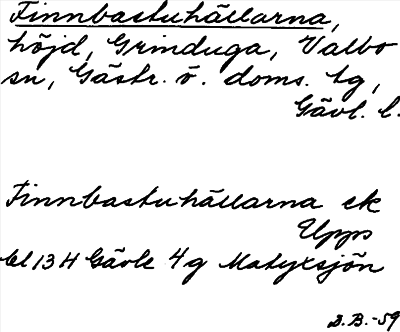 Finnbastuhällarna,
höjd, Grinduga, Valbo
sn, Gästr. ö. doms. tg,
Gävl. l.
Finnbastuhällarna ek
Upps
bl 13 H Gävle 4 g Matyxsjön
B.B.-59